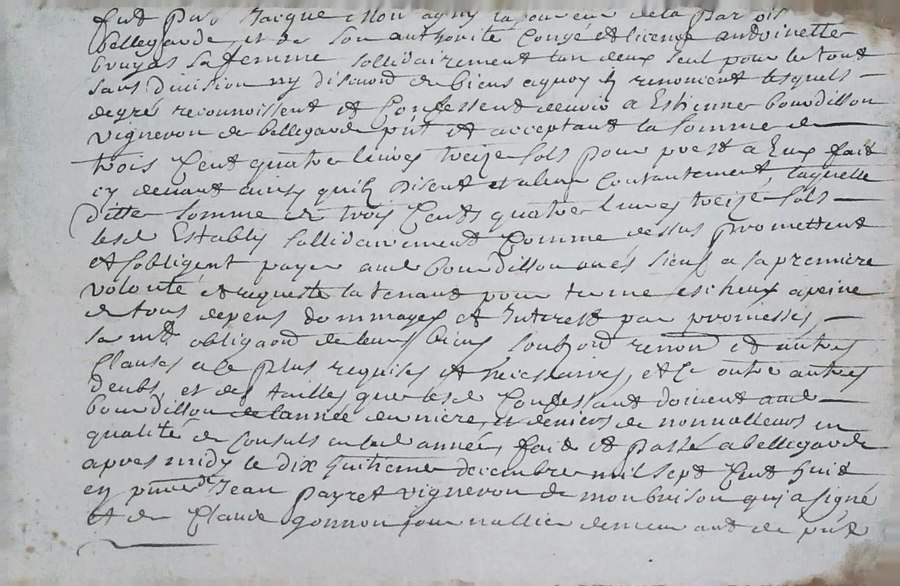 fut pnt Jacque
bellegarde, et de son authorité Conge et licence anthoinette
bruyas sa femme sollidairement lun deux seul pour le tout
sans division ny discord de biens a quoy renoncent lesquels
de gré reconnoissent et Confessent devoir a Estienne bourdillon
vigneron de bellegarde pnt et acceptant la somme de
trois Cent quatre livres treize sols pour prest a Eux fait
cy devant ainsy quilz disent et alleur Contantement, laquelle
ditte somme de trois Cents quatre livres treize sols
lesd Establis sollidairement Comme dessus promettent
et sobligent payer aud bourdillon a sa première
volonté et requeste la tenant pour terme escheux a peine
de tous depens dommages et Interest par promesses,
sermt obligaon de leurs biens, renon et autres
Clauses a ce plus requises et necessaires, et Ce outre autres
deubs, et des tailles que lesd Confessant doivent aud
bourdillon de lannée derniere, en
qualité de Consuls en lad année, fait et passé a bellegarde
apres midy le dix huitieme decembre mil sept Cent huit
en pnce de Jean payret vigneron de monbrison qui a signé
et de Claude gonnon journallier demeurant de